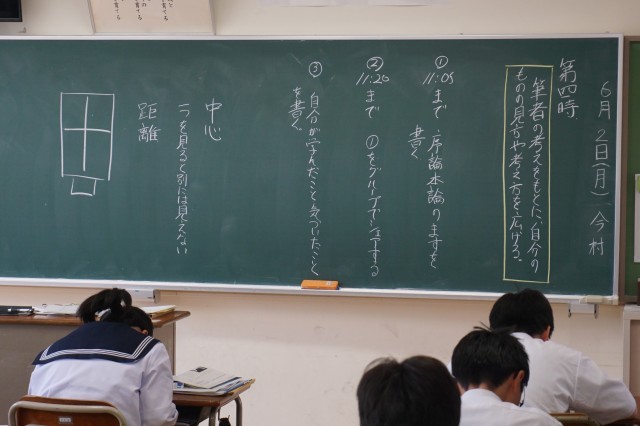 6月2日(月) 今村
第四時
筆者の考えをもとに、自分の
ものの見方や考え方を広げる。
① 11:05まで 序論本論のますを
書く
② 11:20まで ①をグループでシェアする
③ 自分が学んだこと、気づいたこと
を書く
中心
一つを見ると別には見えない
距離